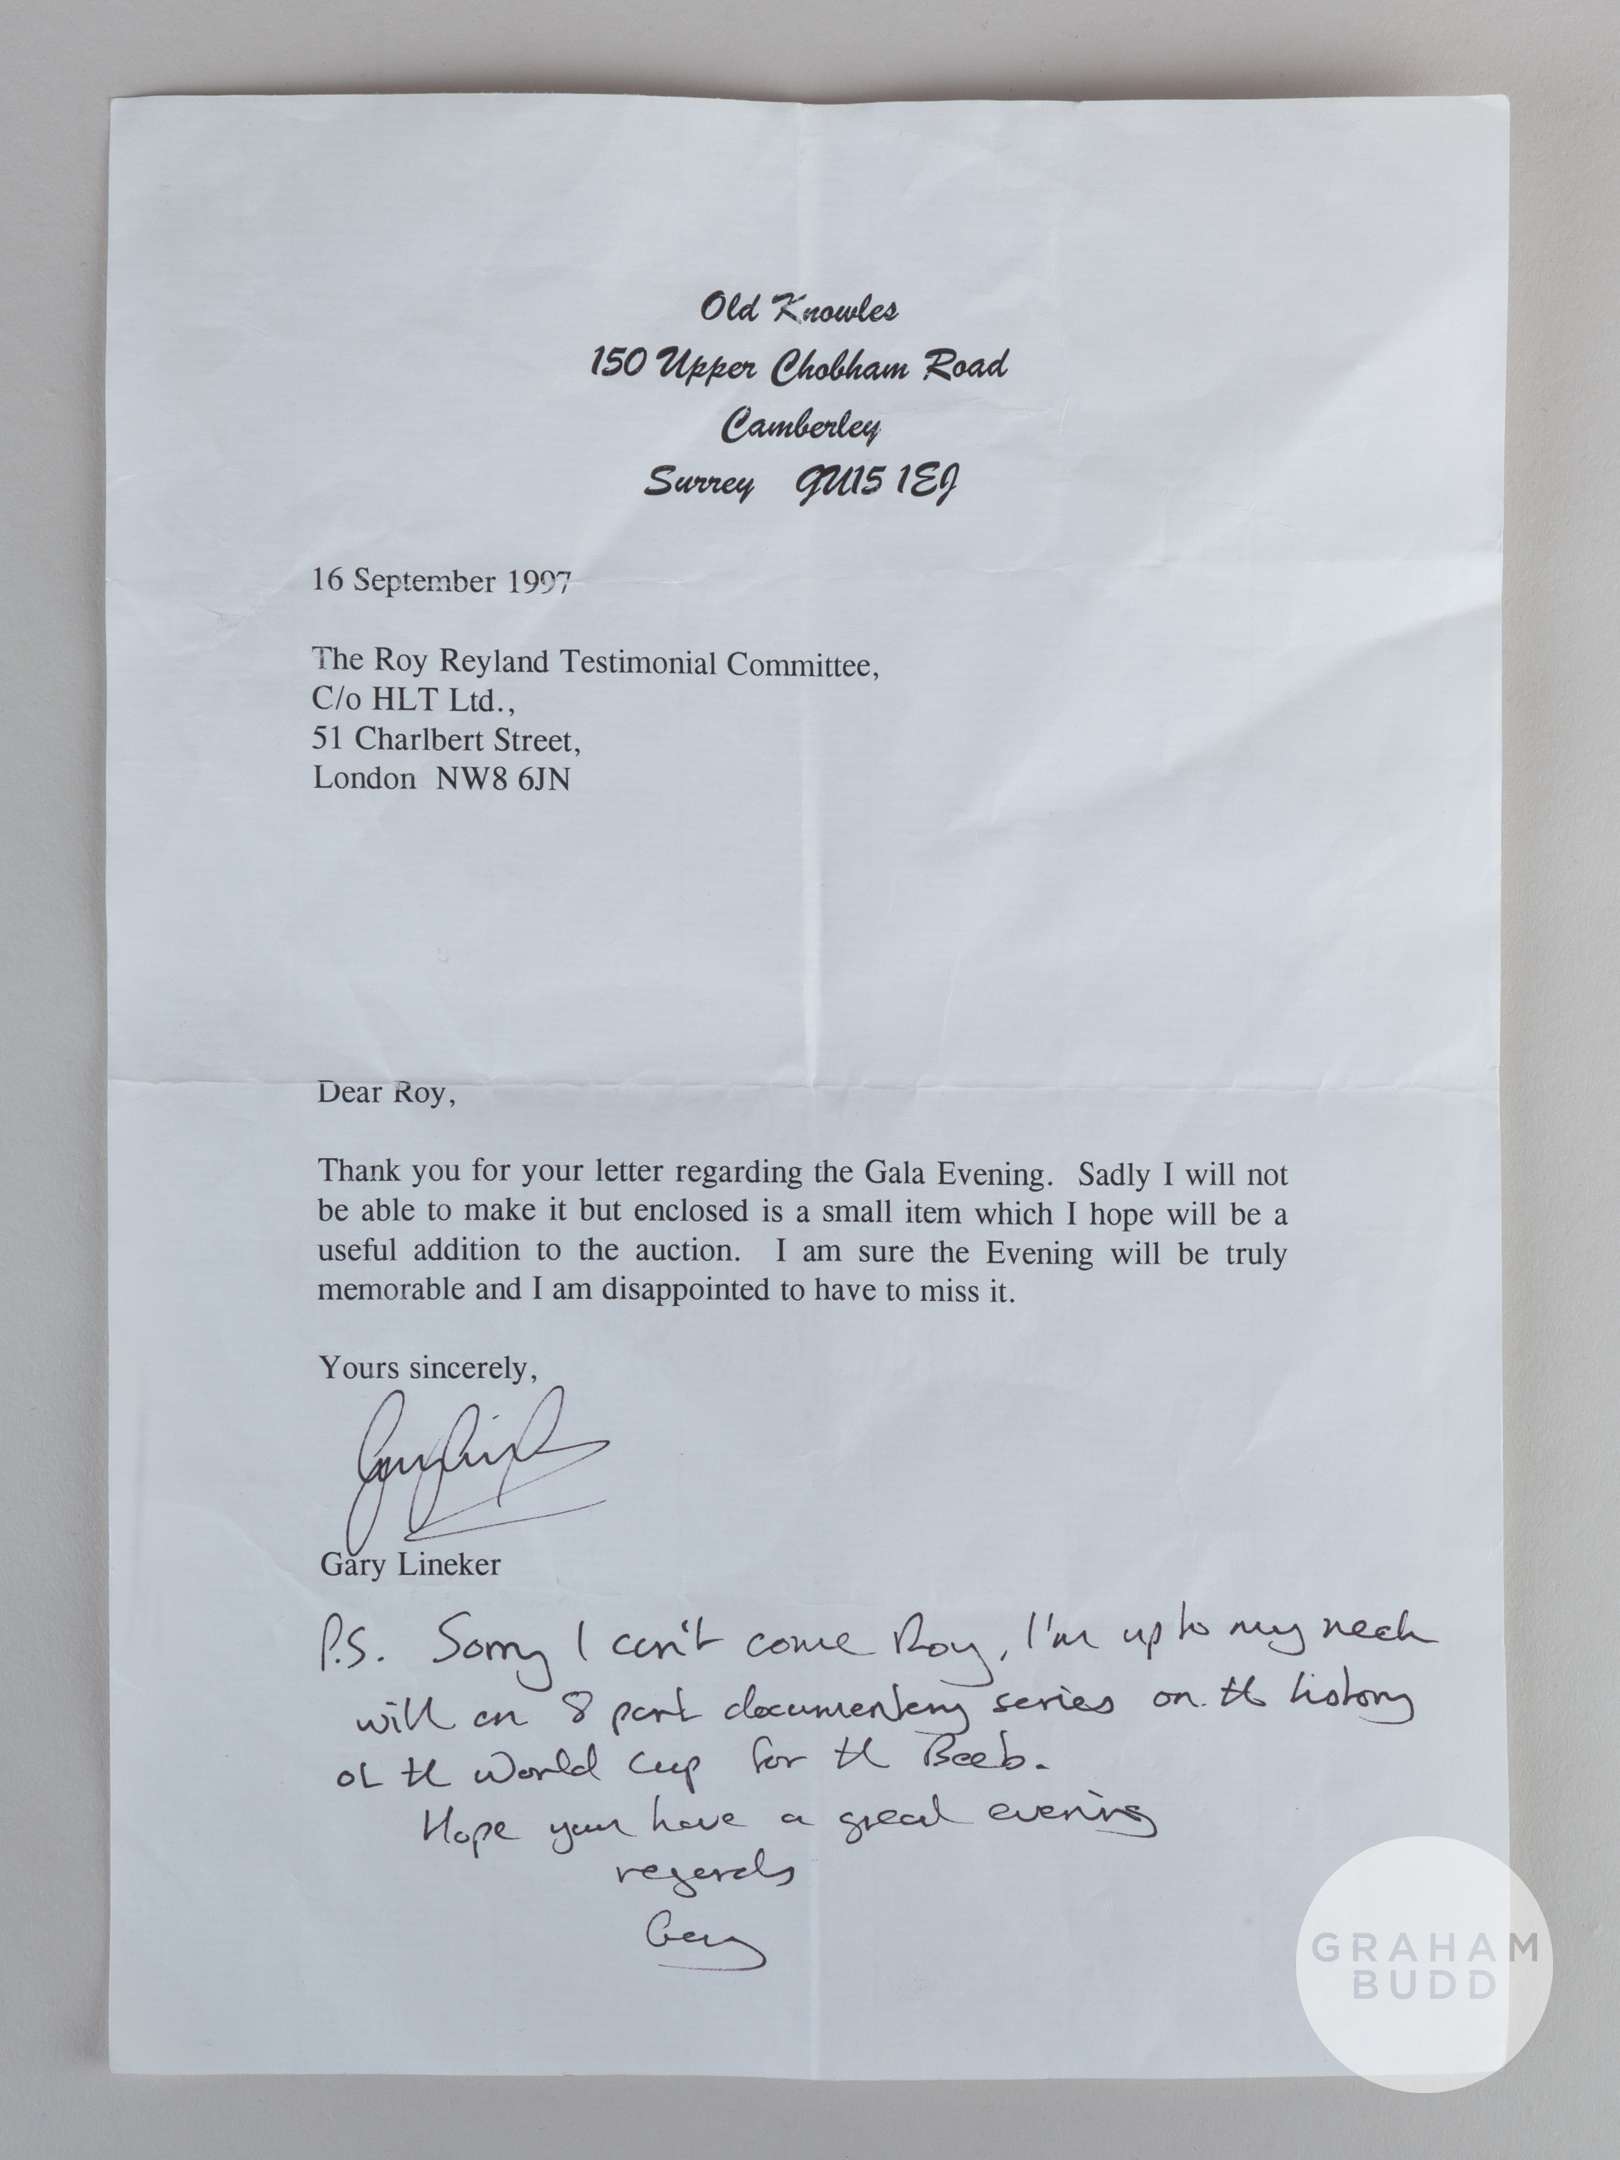 Old Knowles
150 Upper Chobham Road
Camberley
Surrey GU15 1EJ
16 September 1997
The Roy Reyland Testimonial Committee,
C/o HLT Ltd.,
51 Charlbert Street,
London NW8 6JN
Dear Roy,
Thank you for your letter regarding the Gala Evening. Sadly I will not
be able to make it but enclosed is a small item which I hope will be a
useful addition to the auction. I am sure the Evening will be truly
memorable and I am disappointed to have to miss it.
Yours sincerely,
Gary Lineker
P.S. Sorry I can't come Roy, I'm up to my neck
with an 8 part documentary series on the history
of the World Cup for the Beeb.
Hope you have a great evening
regards
Gary
GRAHAM
BUDD